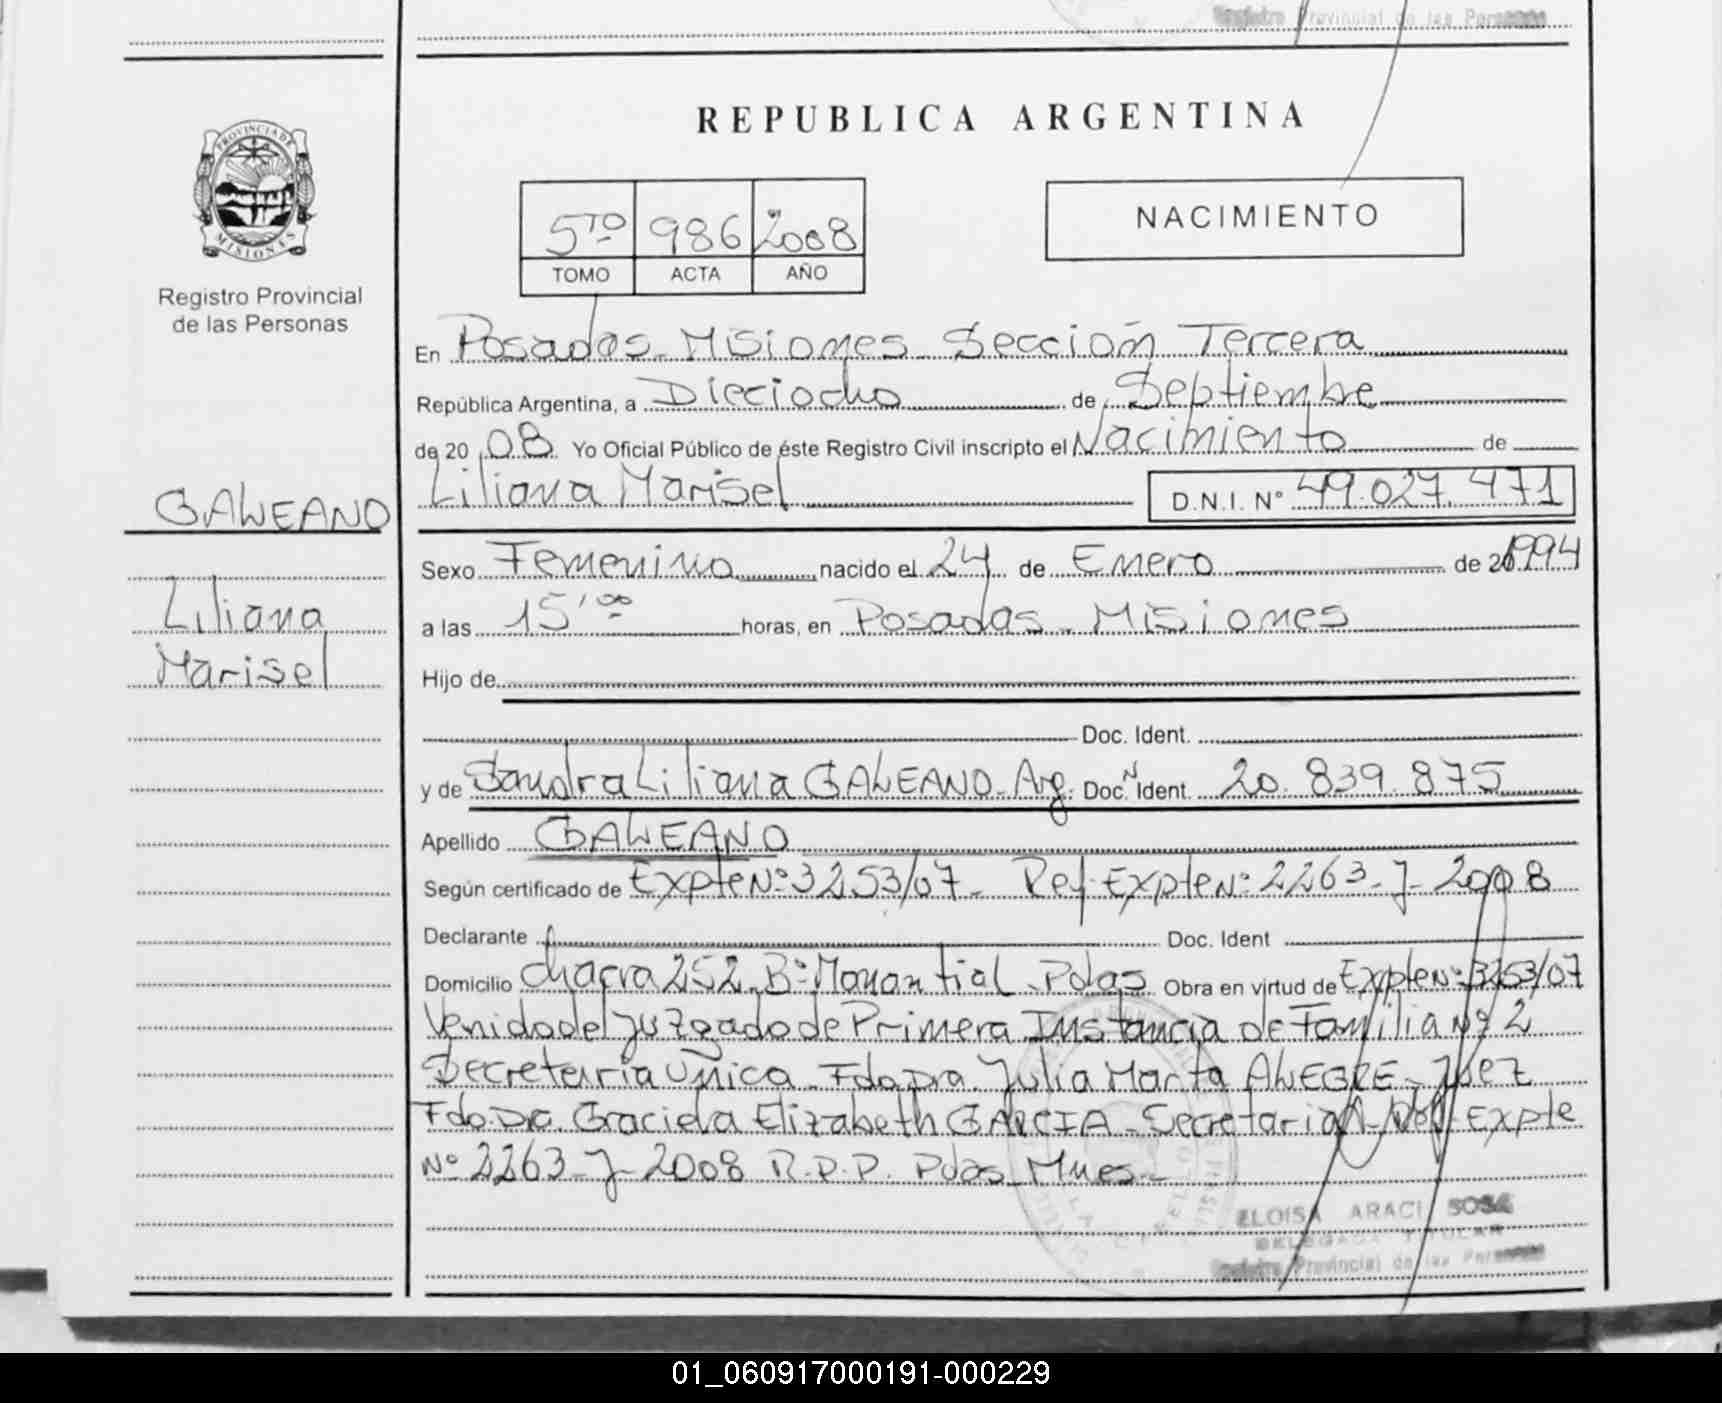 Registro Provincial de las Personas
REPUBLICA ARGENTINA
PROVINCIA DE
MISIONES
Registro Provincial
de las Personas
5TO 986 2008
TOMO ACTA AÑO
NACIMIENTO
En Posadas - Misiones - Sección Tercera
República Argentina, a Dieciocho de Septiembre
de 20 08 Yo Oficial Público de éste Registro Civil inscripto el Nacimiento de
GALEANO
Liliana Marisel D.N.I. Nº 49.027.471
Sexo Femenino nacido el 24 de Enero de 20 1994
Liliana
a las 15'00 horas, en Posadas - Misiones
Marisel
Hijo de
Doc. Ident.
y de Sandra Liliana GALEANO - Arg. Doc. Nº Ident. 20.839.875
Apellido GALEANO
Según certificado de Expte Nº 3253/07 - Ref. Expte Nº 2263-J-2008
Declarante Doc. Ident
Domicilio Chacra 252 Bº Manantial - Pdas Obra en virtud de Expte Nº 3253/07
Venido del Juzgado de Primera Instancia de Familia Nº 2
Secretaria Unica - Fdo Dra. Julia Marta ALEGRE - Juez
Fdo. Dra. Graciela Elizabeth GARCIA - Secretaria - Ref. Expte
Nº 2263-J-2008 R.P.P. Pdas Mnes -
ELOISA ARACI SOSA
DELEGADA TITULAR
Registro Provincial de las Personas
01_060917000191-000229